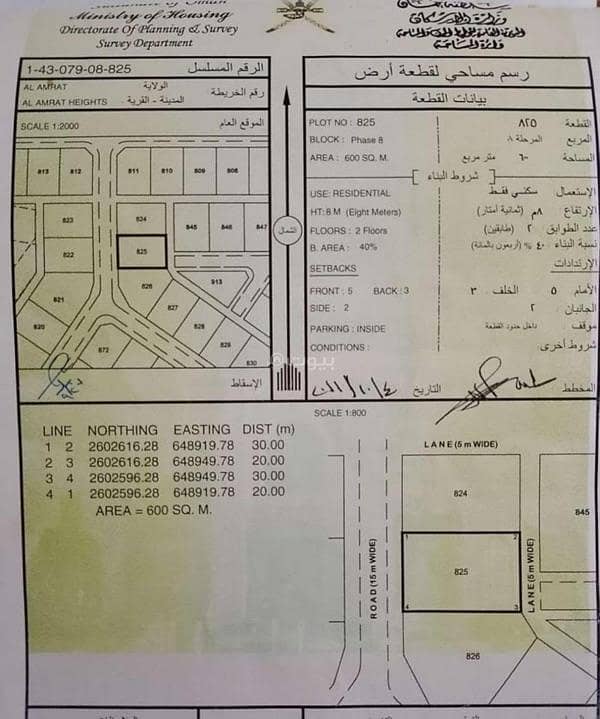 Ministry of Housing
Directorate Of Planning & Survey
Survey Department
1-43-079-08-825 الرقم المسلسل
رسم مساحي لقطعة أرض
AL AMRAT الولاية
AL AMRAT HEIGHTS المدينة - القرية
رقم الخريطة
بيانات القطعة
SCALE 1:2000 الموقع العام
PLOT NO : 825 ٨٢٥ القطعة
BLOCK : Phase 8 المرحلة ٨ المربع
AREA : 600 SQ. M. ٦٠٠ متر مربع المساحة
شروط البناء
USE: RESIDENTIAL سكني فقط الإستعمال
HT: 8 M (Eight Meters) ٨م (ثمانية أمتار) الإرتفاع
FLOORS : 2 Floors ٢ (طابقين) عدد الطوابق
B. AREA : 40% ٤٠ % (أربعون بالمائة) نسبة البناء
SETBACKS الإرتدادات
FRONT : 5 BACK : 3 الأمام ٥ الخلف ٣
SIDE : 2 الجانبان ٢
PARKING : INSIDE موقف داخل حدود القطعة
CONDITIONS : شروط أخرى
813
812
811
810
809
808
823
824
845
846
847
822
825
821
826
913
827
820
828
872
829
830
الشمال
بيوت
الإسقاط
التاريخ
المخطط
SCALE 1:800
LINE NORTHING EASTING DIST (m)
1 2 2602616.28 648919.78 30.00
2 3 2602616.28 648949.78 20.00
3 4 2602596.28 648949.78 30.00
4 1 2602596.28 648919.78 20.00
AREA = 600 SQ. M.
LANE (5 m WIDE)
824
845
1
2
825
4
3
ROAD (15 m WIDE)
LANE (5 m WIDE)
826